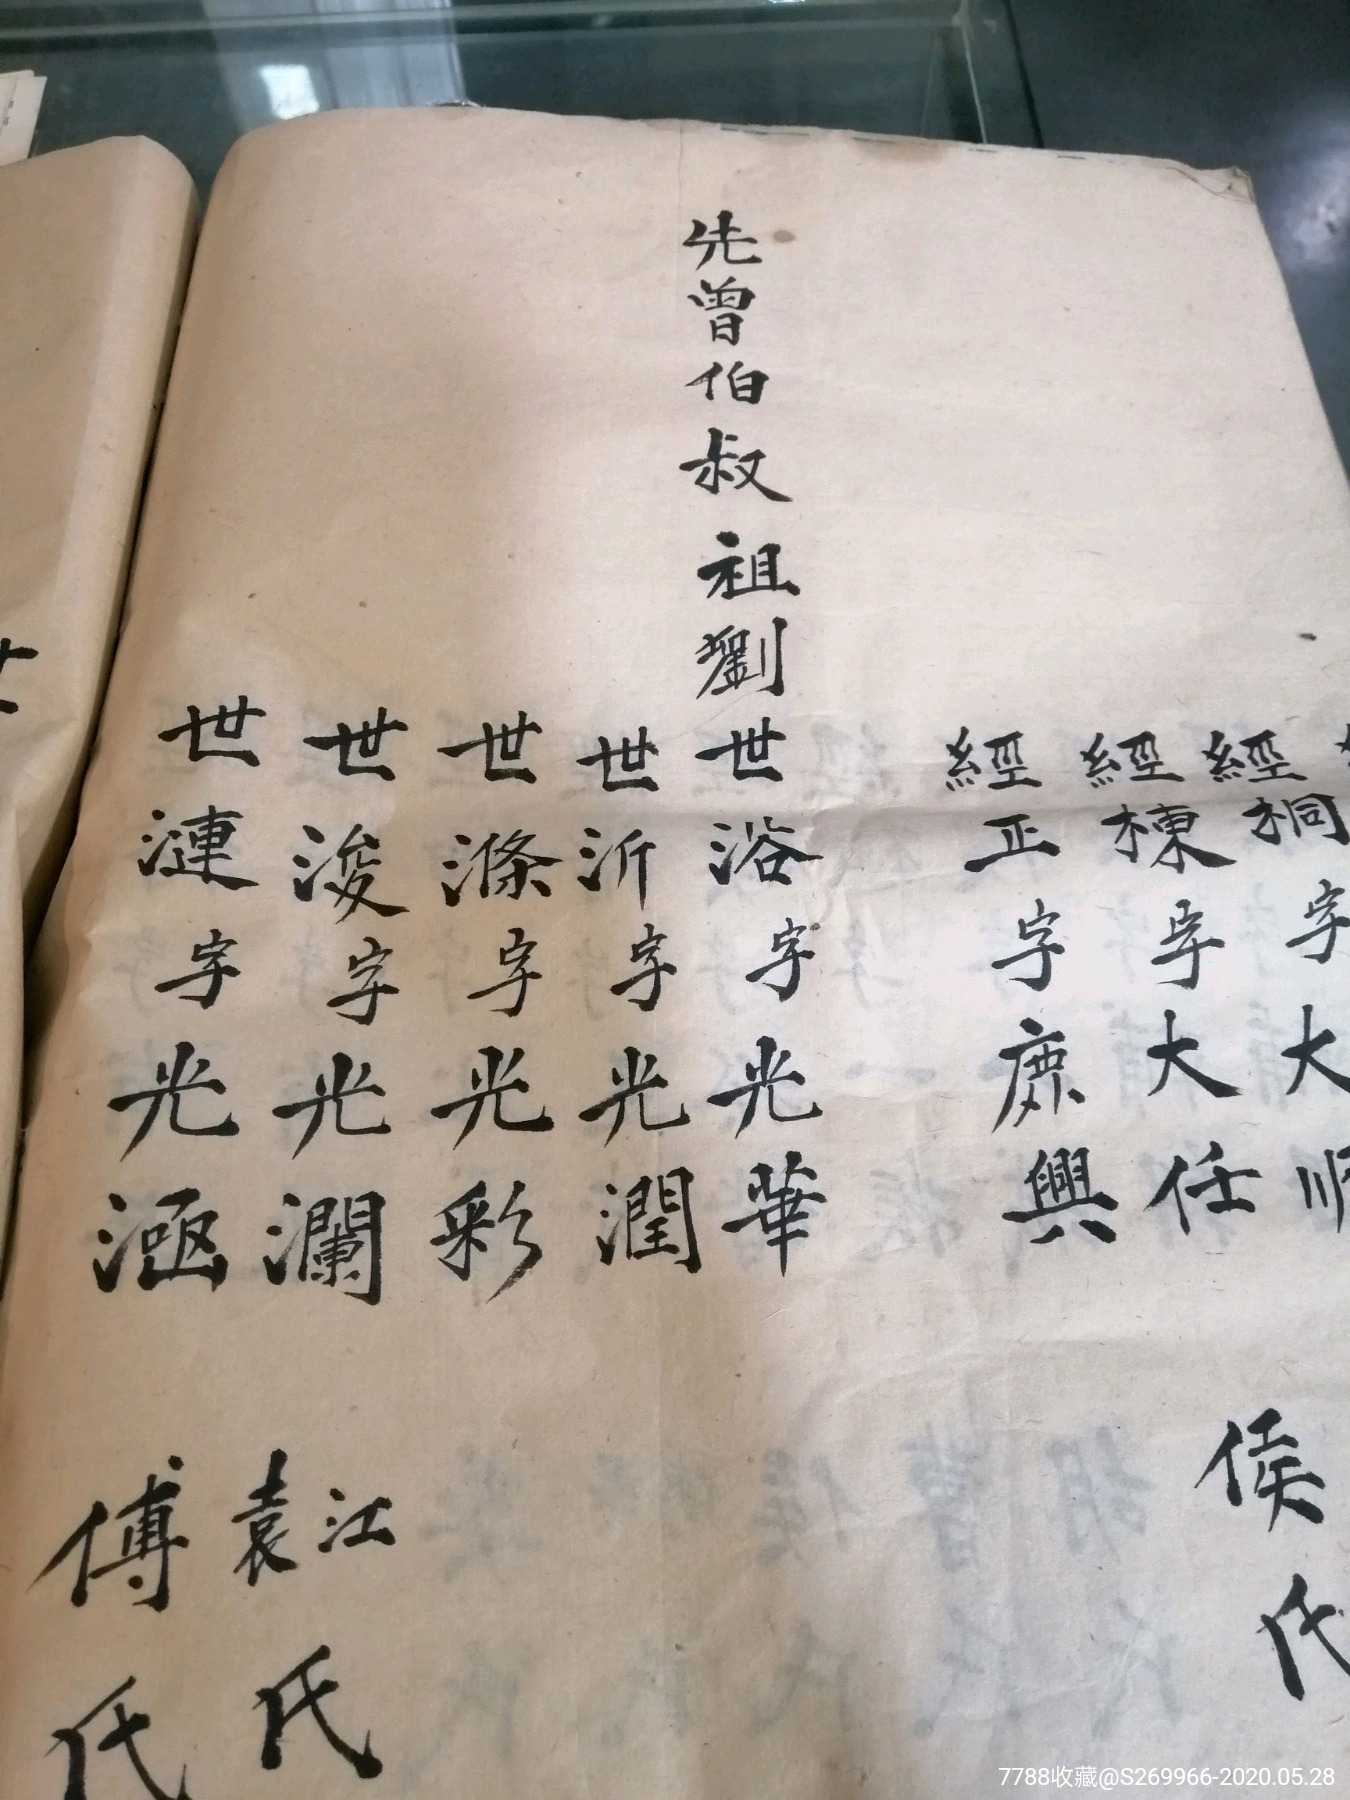 經桐字大順
侯氏
經棟字大任
經正字庶興
先曾伯叔祖劉世浴字光華
世沂字光潤
世滌字光彩
世浚字光瀾
江袁氏
世漣字光涵
傅氏
7788收藏@S269966-2020.05.28